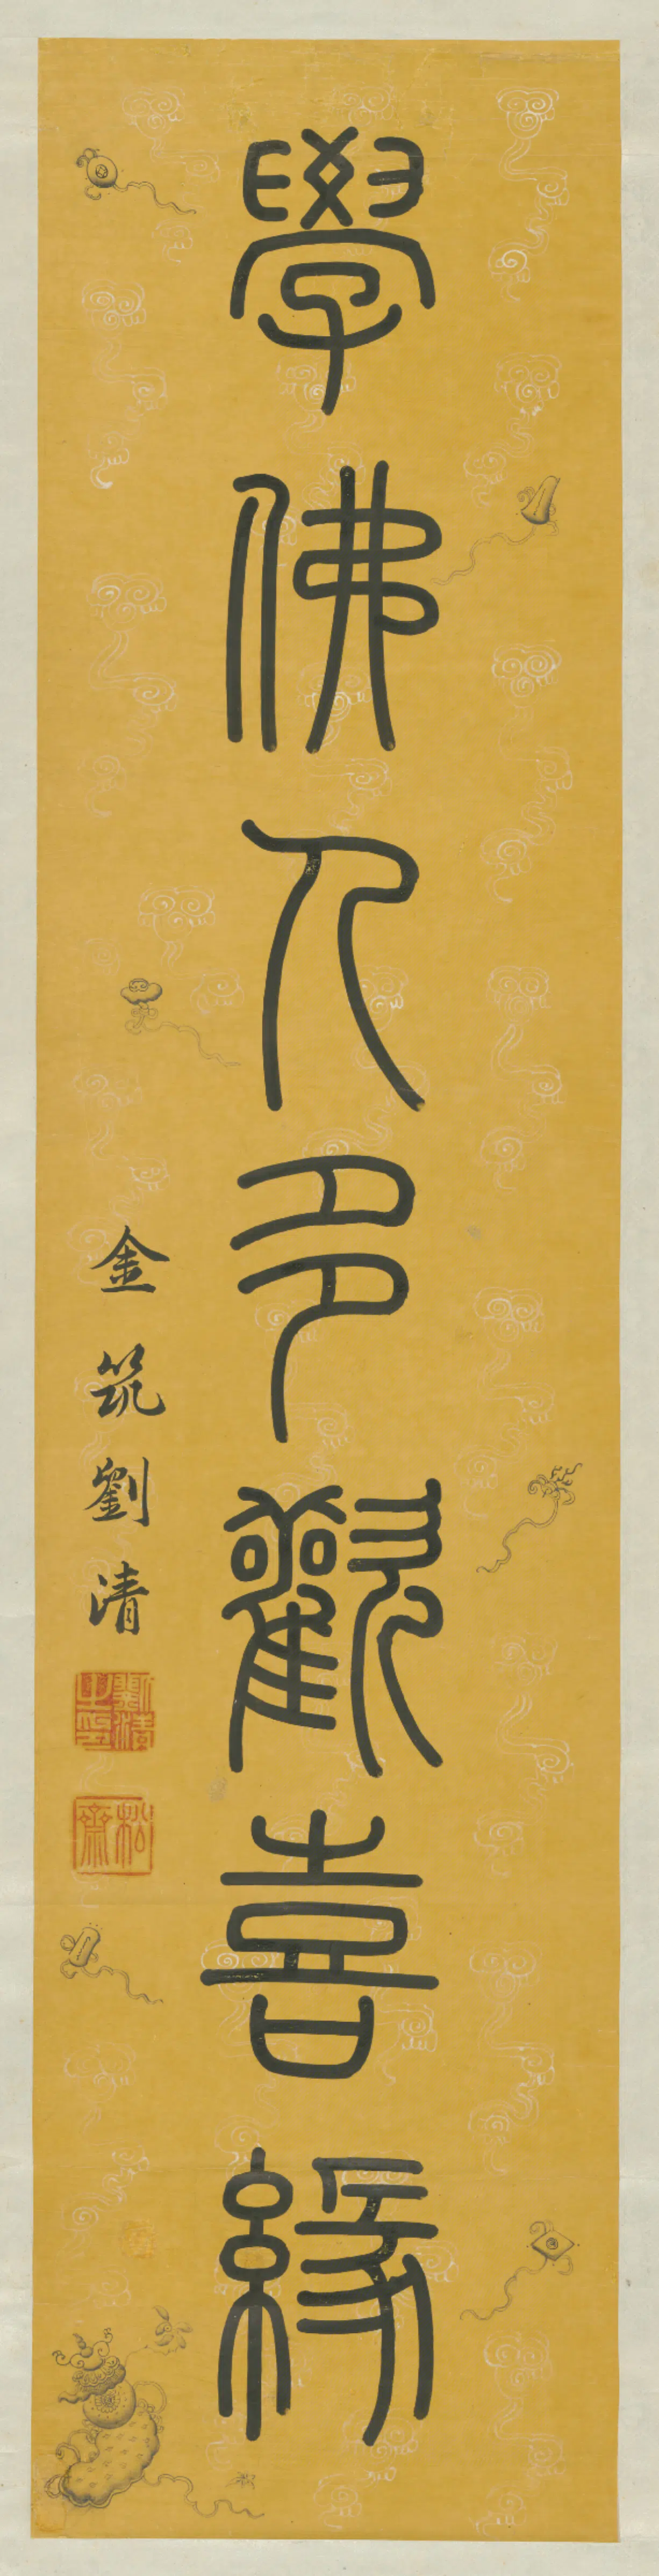 學佛人多歡喜緣
金筑劉清
劉清之印
松齋